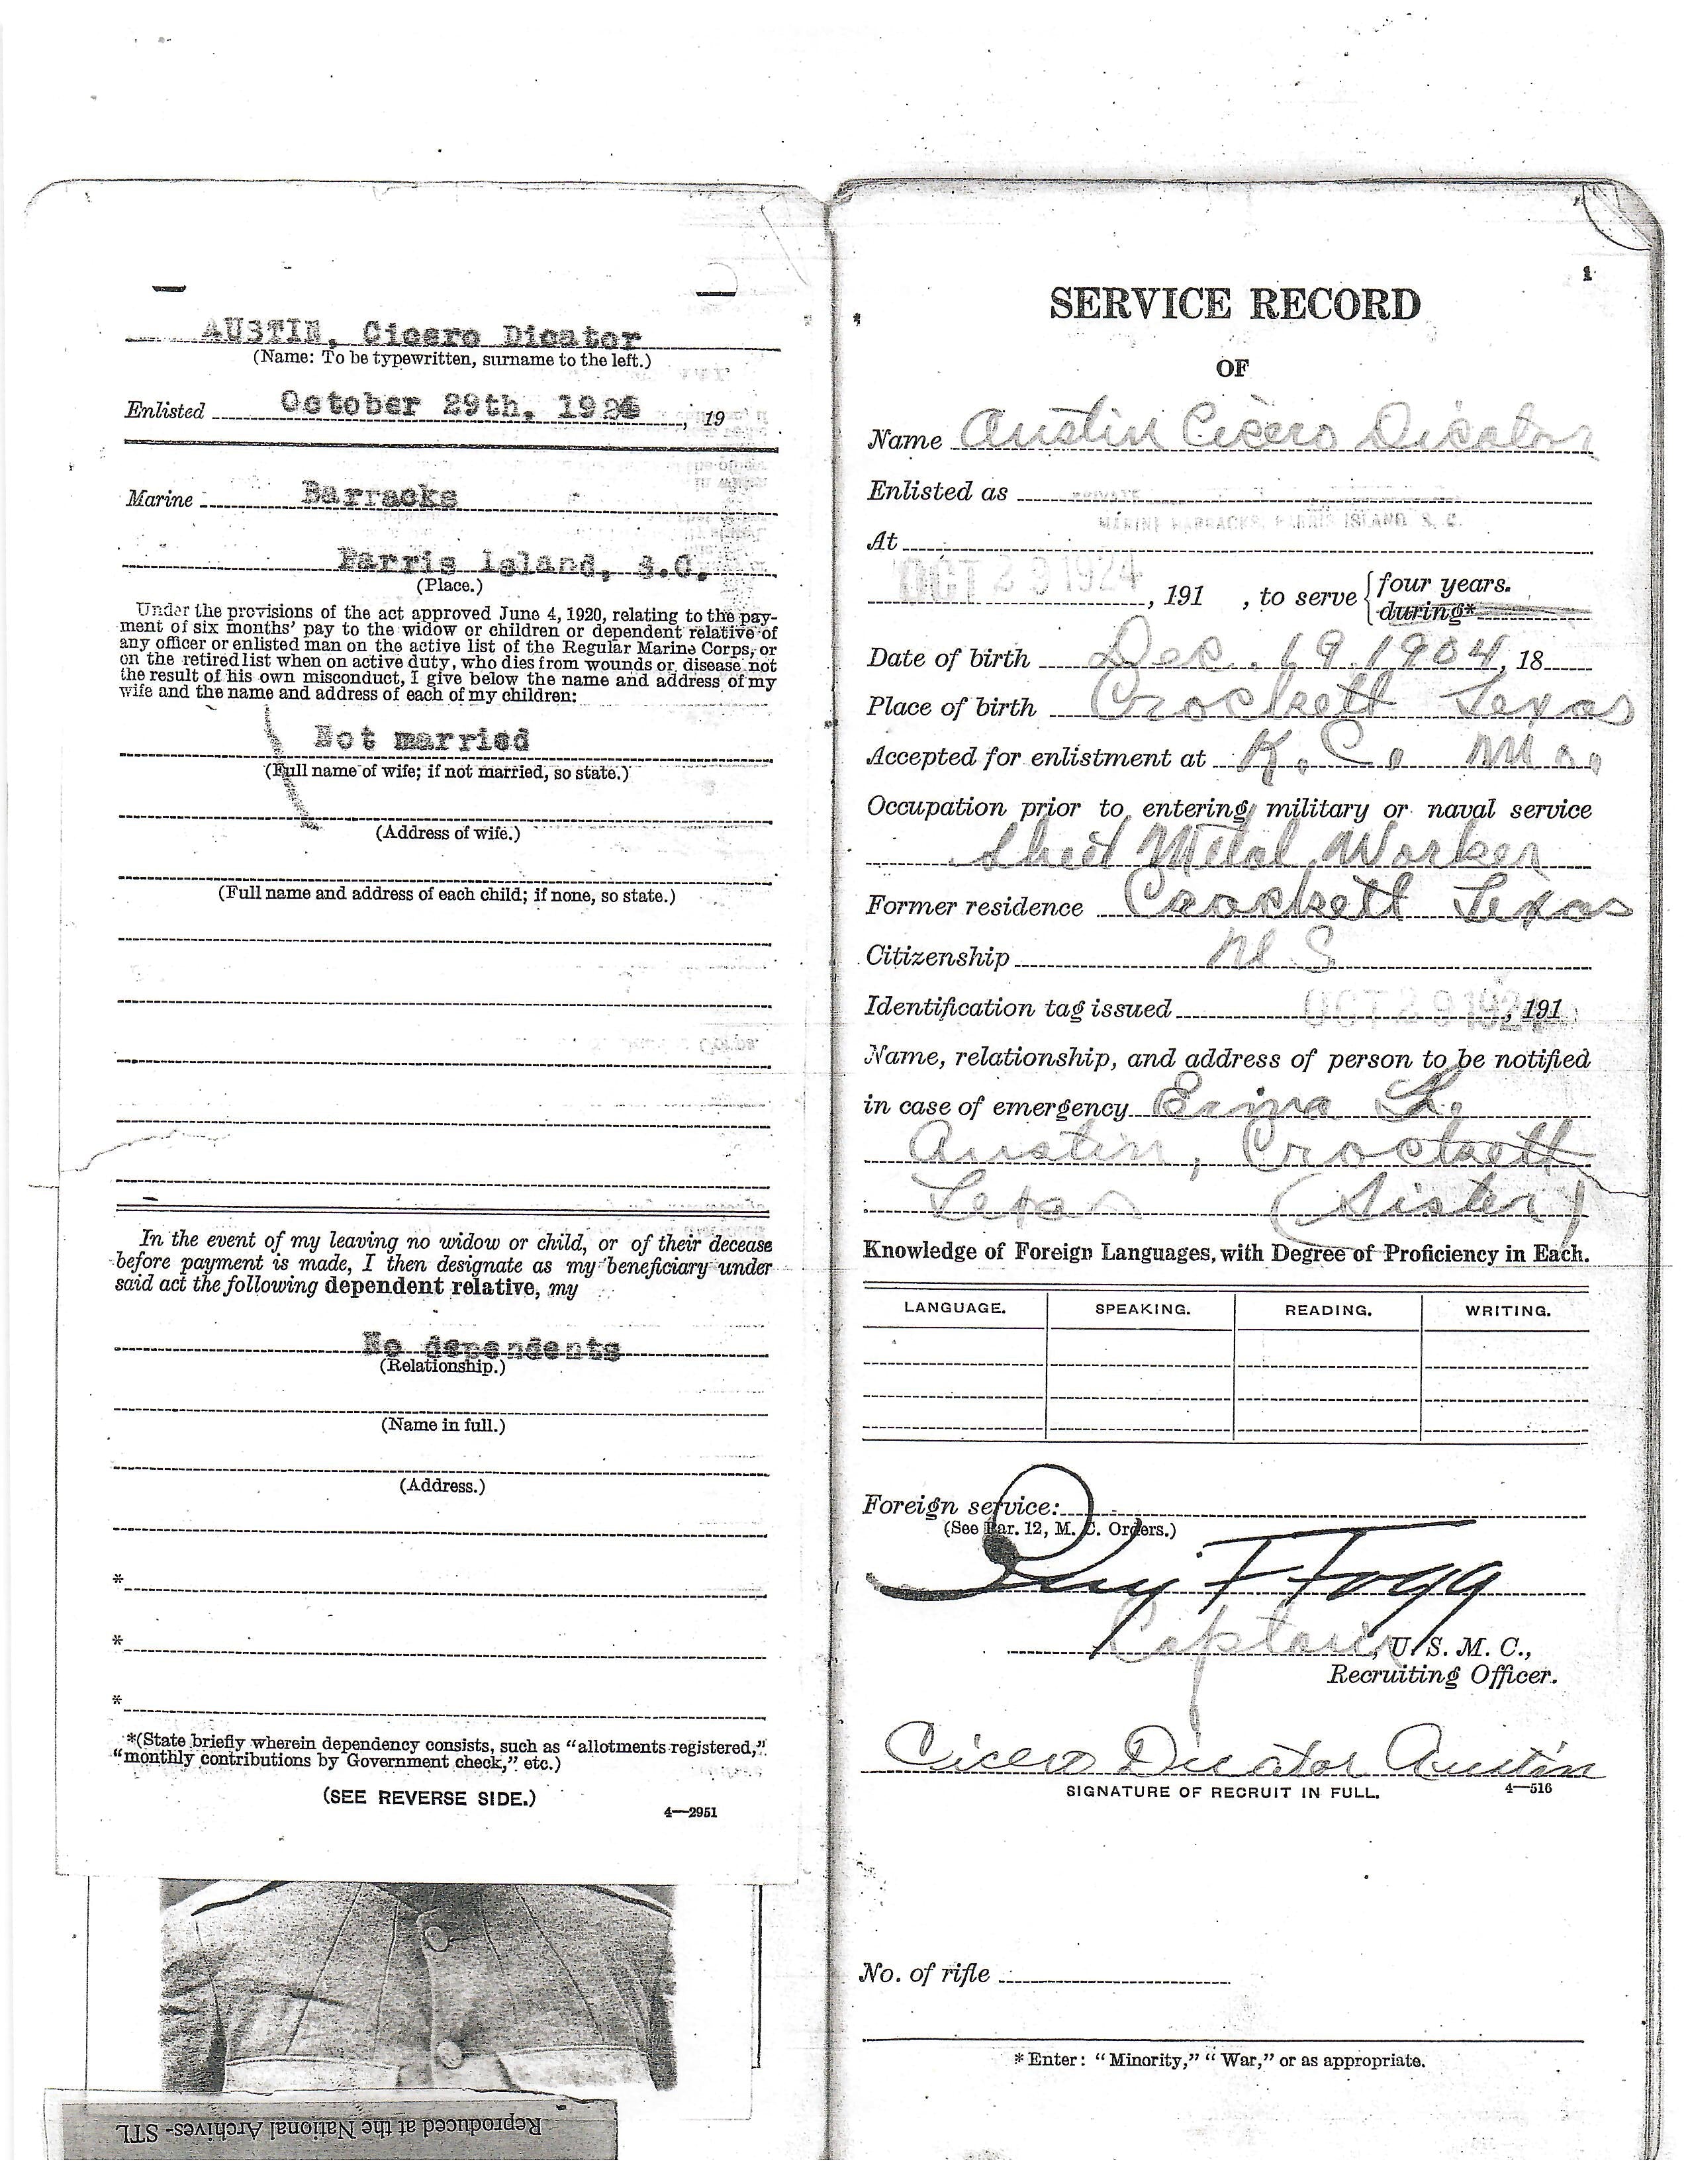 AUSTIN, Cicero Dicator
(Name: To be typewritten, surname to the left.)
Enlisted October 29th, 1924, 19
Marine Barracks
Parris Island, S.C.
(Place.)
Under the provisions of the act approved June 4, 1920, relating to the pay-
ment of six months' pay to the widow or children or dependent relative of
any officer or enlisted man on the active list of the Regular Marine Corps, or
on the retired list when on active duty, who dies from wounds or disease not
the result of his own misconduct, I give below the name and address of my
wife and the name and address of each of my children:
Not married
(Full name of wife; if not married, so state.)
(Address of wife.)
(Full name and address of each child; if none, so state.)
In the event of my leaving no widow or child, or of their decease
before payment is made, I then designate as my beneficiary under
said act the following dependent relative, my
No dependents
(Relationship.)
(Name in full.)
(Address.)
*
*
*
*(State briefly wherein dependency consists, such as "allotments registered,"
"monthly contributions by Government check," etc.)
(SEE REVERSE SIDE.)
4—2951
Reproduced at the National Archives- STL
1
SERVICE RECORD
OF
Name Austin Cicero Dicator
Enlisted as PRIVATE
MARINE BARRACKS, PARRIS ISLAND, S. C.
At
OCT 29 1924, 191 , to serve four years.
during*
Date of birth Dec. 19. 1904, 18
Place of birth Crockett Texas
Accepted for enlistment at K. C. Mo.
Occupation prior to entering military or naval service
Sheet Metal Worker
Former residence Crockett Texas
Citizenship U S
Identification tag issued OCT 29 1924, 191
Name, relationship, and address of person to be notified
in case of emergency L.
Austin, Crockett
Texas (Sister)
Knowledge of Foreign Languages, with Degree of Proficiency in Each.
LANGUAGE. SPEAKING. READING. WRITING.
Foreign service:
(See Par. 12, M. C. Orders.)
Captain, U. S. M. C.,
Recruiting Officer.
Cicero Dicator Austin
SIGNATURE OF RECRUIT IN FULL. 4—516
No. of rifle
* Enter: "Minority," "War," or as appropriate.